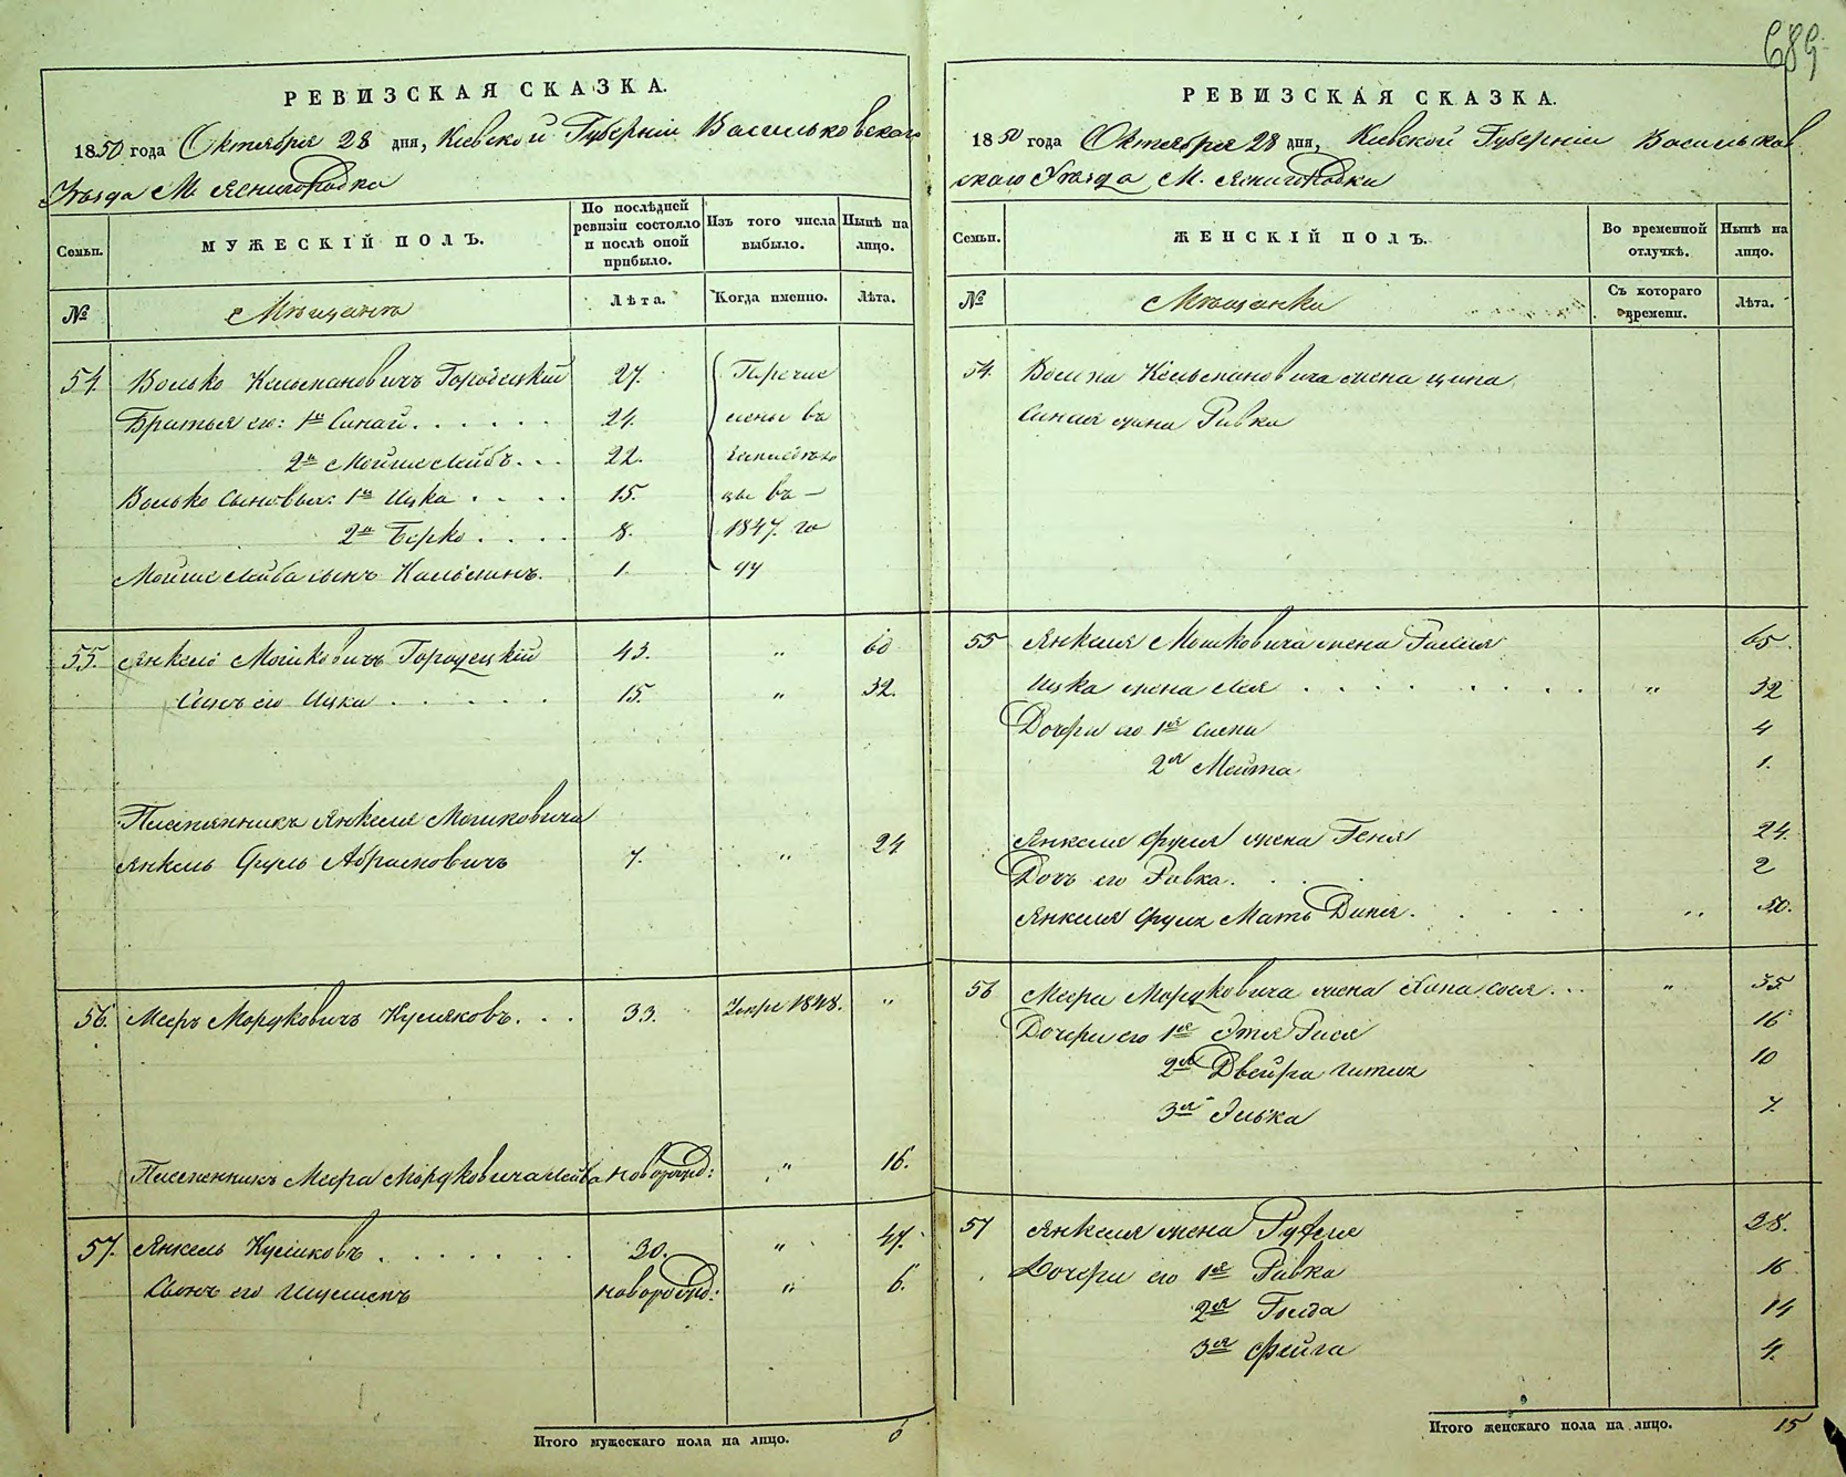 689
РЕВИЗСКАЯ СКАЗКА.
1850 года Октября 28 дня, Киевской Губернiи Васильковскаго
Уѣзда М. Ясногородка
Семьи.
МУЖЕСКІЙ ПОЛЪ.
По послѣдней ревизіи состояло и послѣ оной прибыло.
Изъ того числа выбыло.
Нынѣ на лицо.
№
Мѣщанъ
Лѣта.
Когда именно.
Лѣта.
54 Волько Кельмановичъ Городецкій 27. Перечис
Братья его: 1й Синай 24. лены въ
2й Мойше Лейбъ 22.
Волько сыновья: 1й Ицка 15. цы въ
2й Берко 8. 1847. го
Мойше Лейба сынъ Кельманъ. 1. ду
55. Янкель Мошковичъ Городецкій 43. " 60
Сынъ его Ицка 15. " 32.
Племянникъ Янкеля Мошковича
Янкель Фроль Абрамовичъ 7. " 24
56. Мееръ Мордковичъ Кусляковъ. 33. Умре 1848. "
Племянникъ Меера Мордковича Лейба новорожд: " 16.
57. Янкель Кушковъ 30. " 47.
Сынъ его новорожд: " 6.
Итого мужескаго пола на лицо. 6
РЕВИЗСКАЯ СКАЗКА.
1850 года Октября 28 дня, Киевской Губернiи Васильков
скаго Уѣзда М. Ясногородки
Семьи.
ЖЕНСКІЙ ПОЛЪ.
Во временной отлучкѣ.
Нынѣ на лицо.
№
Мѣщанки
Съ котораго времени.
Лѣта.
54. Волька Кельмановича жена Ципа
Синая жена Ривка
55 Янкеля Мошковича жена 65.
Ицка жена Лея " 32
Дочери его 1я Слена 4
2я Мейта 1.
Янкеля Фроля жена Геня 24.
Дочь его Ривка. 2
Янкеля Фроля Мать Диня. " 50.
56 Меера Мордковича жена Хана Сося " 35
Дочери его 1я Этя Рися 16
2я Двейра Гитля 10
3я Элька 7.
57 Янкеля жена Рухля 38.
Дочери его 1я Ривка 16
2я Голда 14
3я Фейга 4.
Итого женскаго пола на лицо. 15